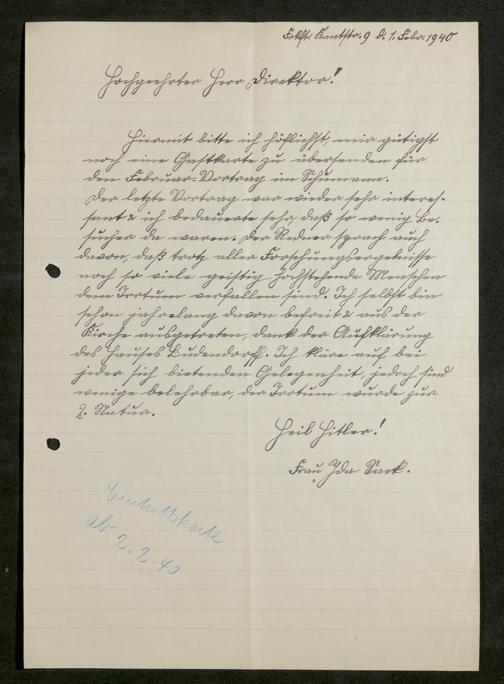 Kantstr. 9 d. 1. Febr. 1940
Hochgeehrter Herr Direktor!
Hiermit bitte ich höflichst, mir gütigst
noch eine Gastkarte zu übersenden für
den Februar-Vortrag im Schumann.
Der letzte Vortrag war wieder sehr interes-
sant & ich bedauerte sehr, daß so wenig Be-
sucher da waren. Der Redner sprach auch
davon, daß trotz aller Forschungsergebnisse
noch so viele geistig hochstehende Menschen
dem Irrtum verfallen sind. Ich selbst bin
schon jahrelang davon befreit & aus der
Kirche ausgetreten, dank der Aufklärung
des Hauses Ludendorff. Ich kläre auf bei
jeder sich bietenden Gelegenheit, jedoch sind
wenige belehrbar, der Irrtum wurde zur
2. Natur.
Heil Hitler!
Frau Ida Sack.
Eintrittskarte
ab
2.2.40